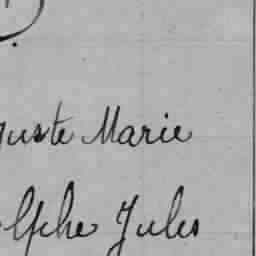 guste Marie
olphe Jules